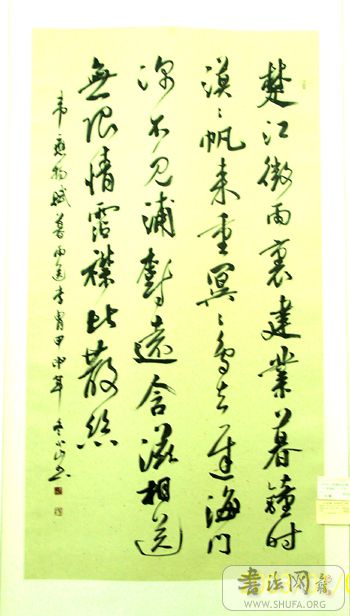 楚江微雨裏建業暮鐘時
漠〻帆来重冥〻鳥去遲海门
深不见浦樹遠含滋相送
無限情霑襟比散絲
韦應物賦暮雨送李胄甲申年冬小山书
書法网
WWW.SHUFA.ORG